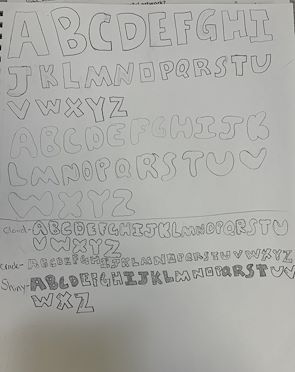 ABCDEFGHI
JKLMNOPQRSTU
VWXYZ
ABCDEFGHIJK
LMNOPQRSTUV
WXYZ
Cloud-ABCDEFGHIJKLMNOPQRSTU
VWXYZ
ABCDEFGHIJKLMNOPQRSTUVWXYZ
Shiny-ABCDEFGHIJKLMNOPQRSTUV
WXZ